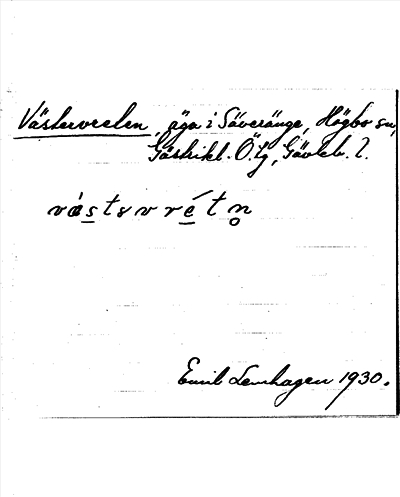 Västervreten, äga i Säveränge, Högbo sn,
Gästrikl. Ö. tg, Gävleb. l.
vástsvrétn
Emil Lenhagen 1930.